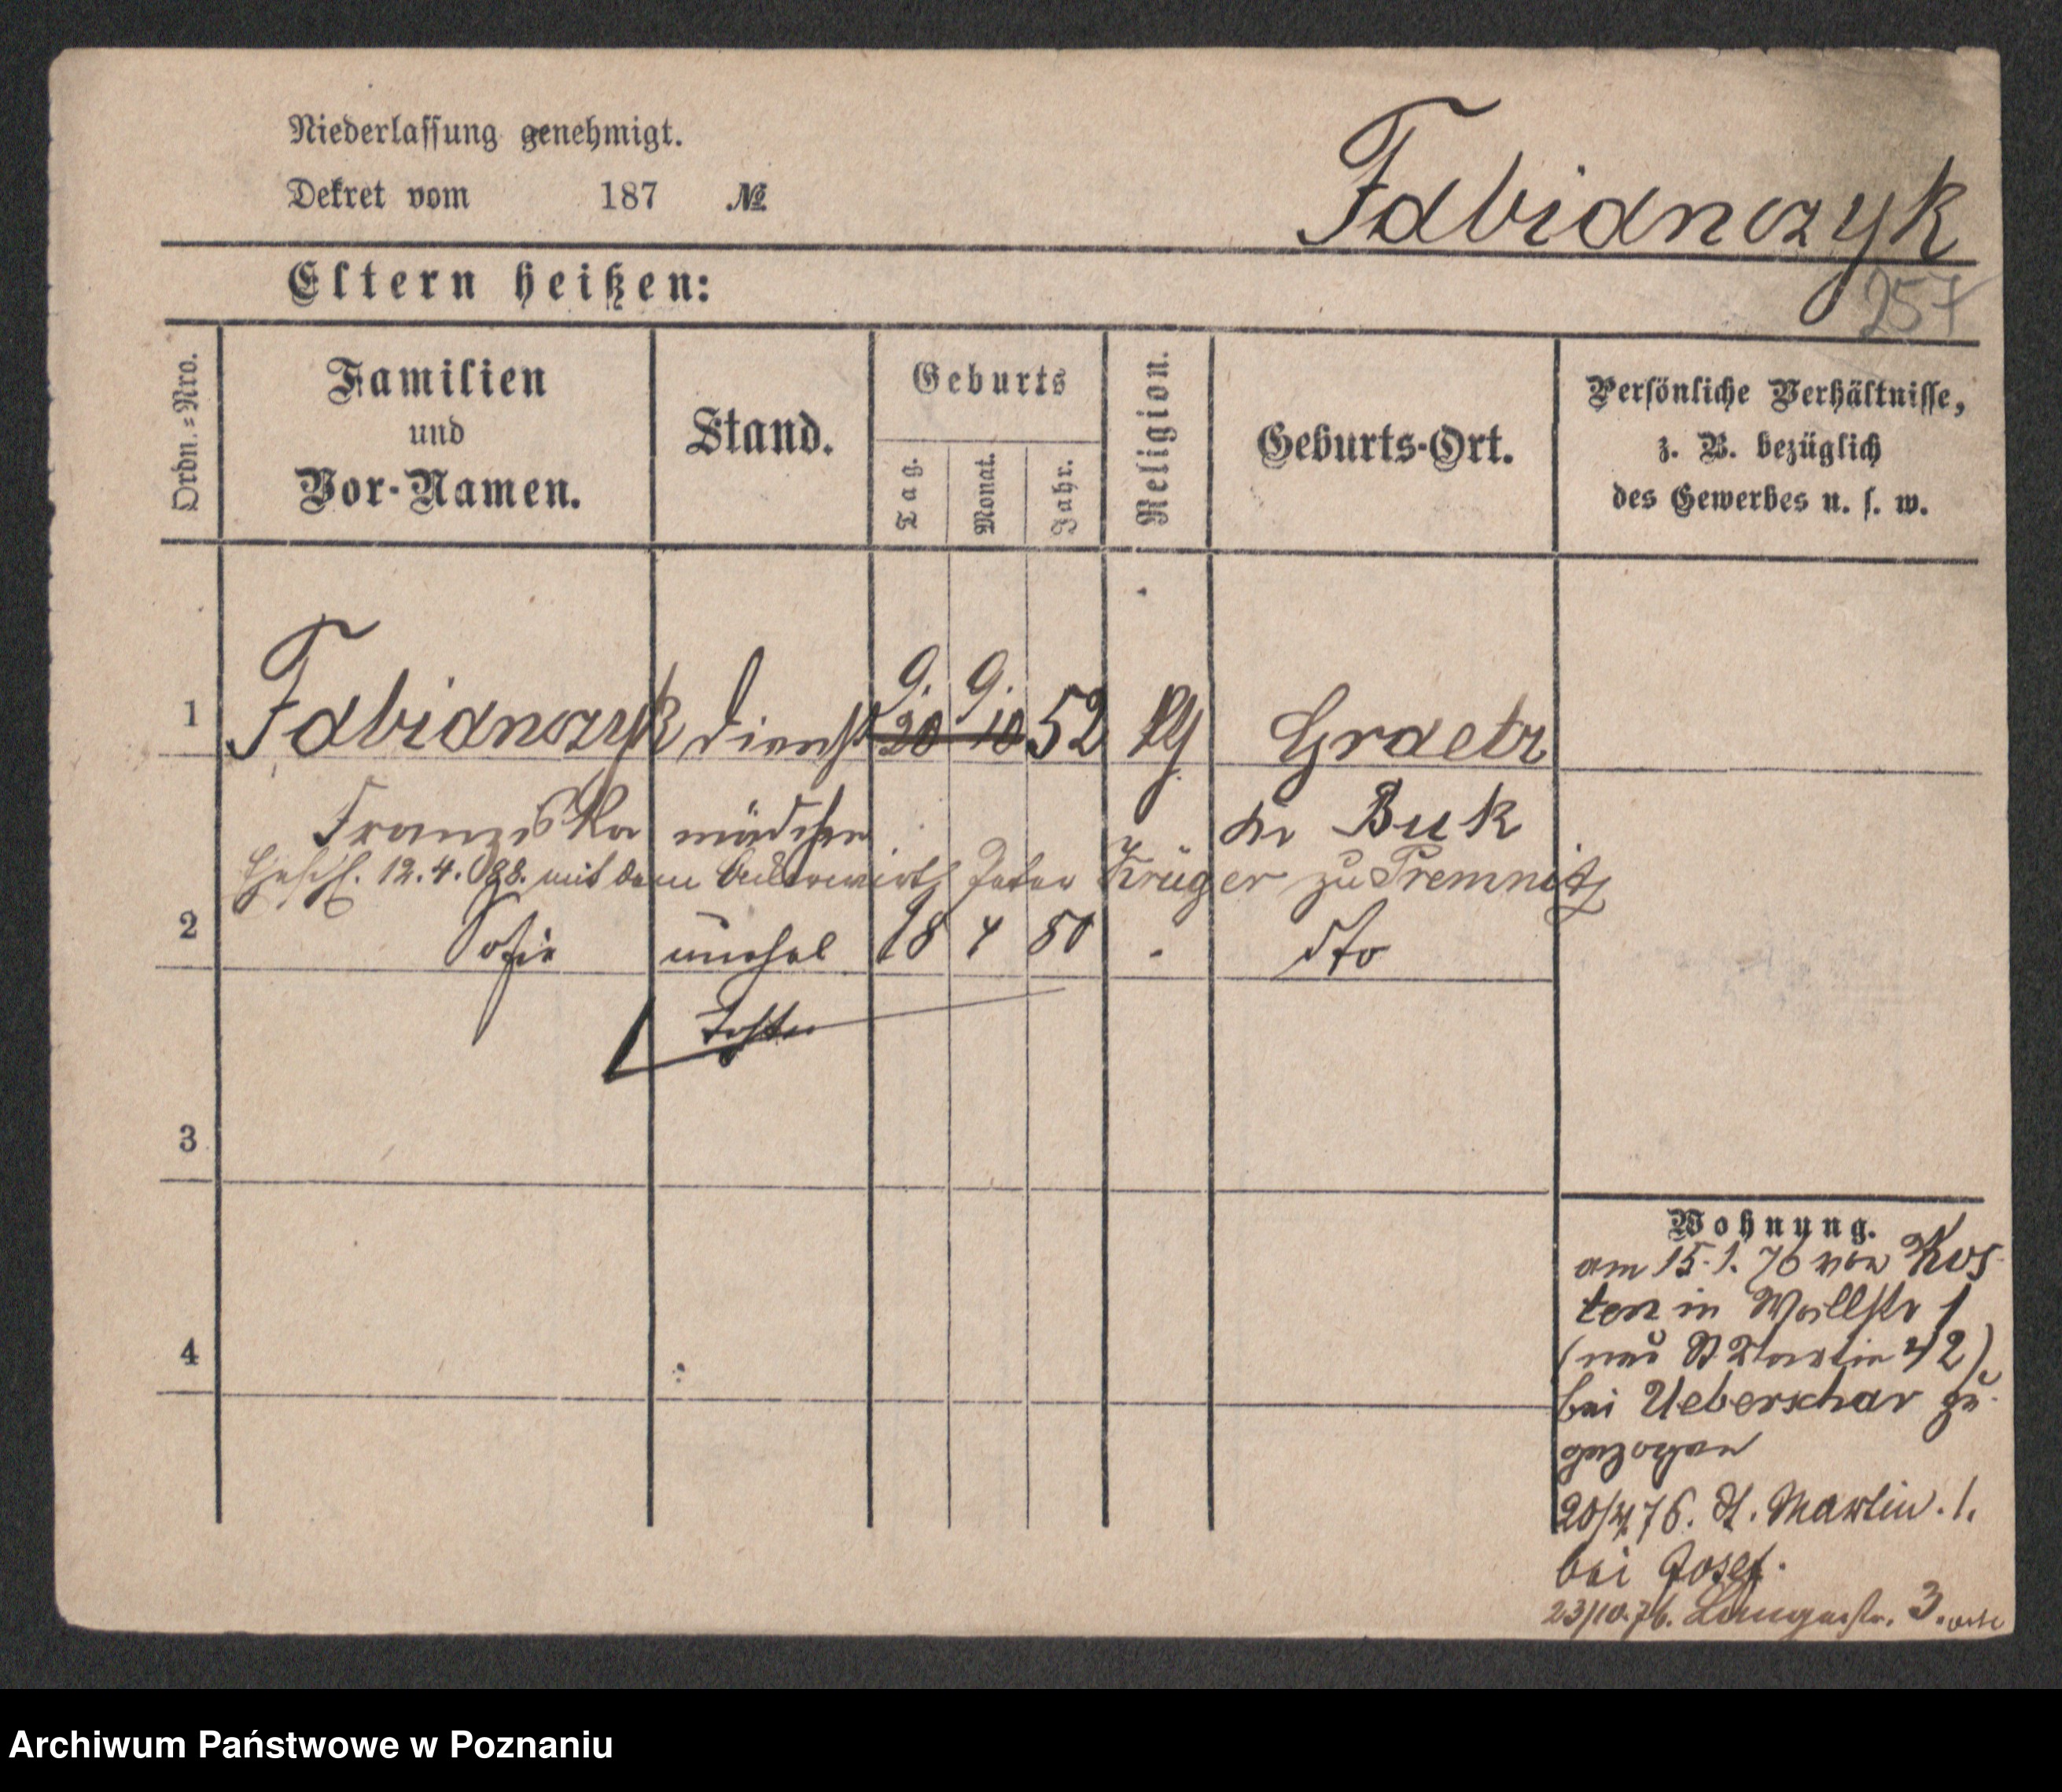 Niederlassung genehmigt.
Dekret vom 187 №
Fabianczyk
257
Eltern heißen:
Ordn.=Nro.
Familien
und
Vor-Namen.
Stand.
Geburts
Tag.
Monat.
Jahr.
Religion.
Geburts-Ort.
Persönliche Verhältnisse,
z. B. bezüglich
des Gewerbes u. s. w.
9. 9.
1 Fabianczyk Dienst 20 10 52 Graetz
Franziska mädchen Kr Buk
12.4.88. mit dem Ackerwirth Peter Krüger zu Premnitz
2 Sofie unehel 18 4 80 dto
Tochter
3
4
Wohnung.
am 15.1.76 von Kos-
ten in Wallstr 1
(neu St Martin 42)
bei Ueberschar zu-
gezogen
20/4 76. St. Martin. 1.
bei Josef.
23/10.76. Langestr. 3.
Archiwum Państwowe w Poznaniu